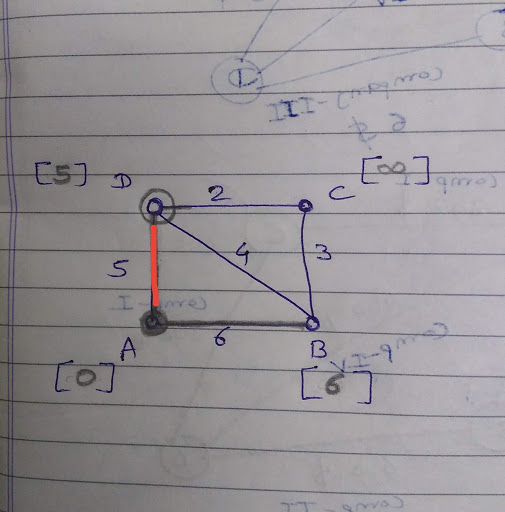 [5] D C [∞]
2
5 4 3
6
A B
[0] [6]